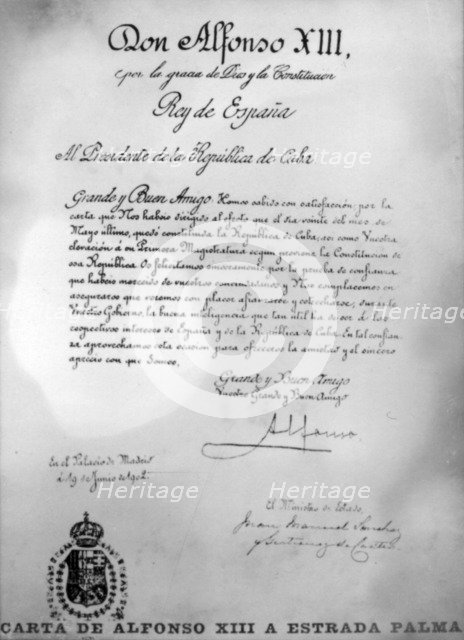 Don Alfonso XIII,
por la gracia de Dios y la Constitucion
Rey de España
Al Presidente de la República de Cuba
Grande y Buen Amigo: Hemos sabido con satisfacción por la
carta que Nos habeis dirigido al efecto que el dia veinte del mes de
Mayo último, quedó constituida la República de Cuba, asi como Vuestra
elevación á su Primera Magistratura segun previene la Constitucion de
esa República. Os felicitamos sinceramente por tu prueba de confianza
que habeis merecido de vuestros conciudadanos y Nos complacemos en
aseguraros que veremos con placer afianzarse y estrecharse, durante
Vuestro Gobierno, la buena inteligencia que tan util ha de ser á los
respectivos intereses de España y de la República de Cuba. En tal confian-
za aprovechamos esta ocasion para ofreceros la amistad y el sincero
aprecio con que Somos,
Grande y Buen Amigo
Vuestro Grande y Buen Amigo
Alfonso
En el Palacio de Madrid
á 19 de Junio de 1902.
El Ministro de Estado,
Juan Manuel Sanchez
y Gutierrez de Castro
CARTA DE ALFONSO XIII A ESTRADA PALMA
Heritage
Heritage
Heritage
Heritage
Heritage
Heritage